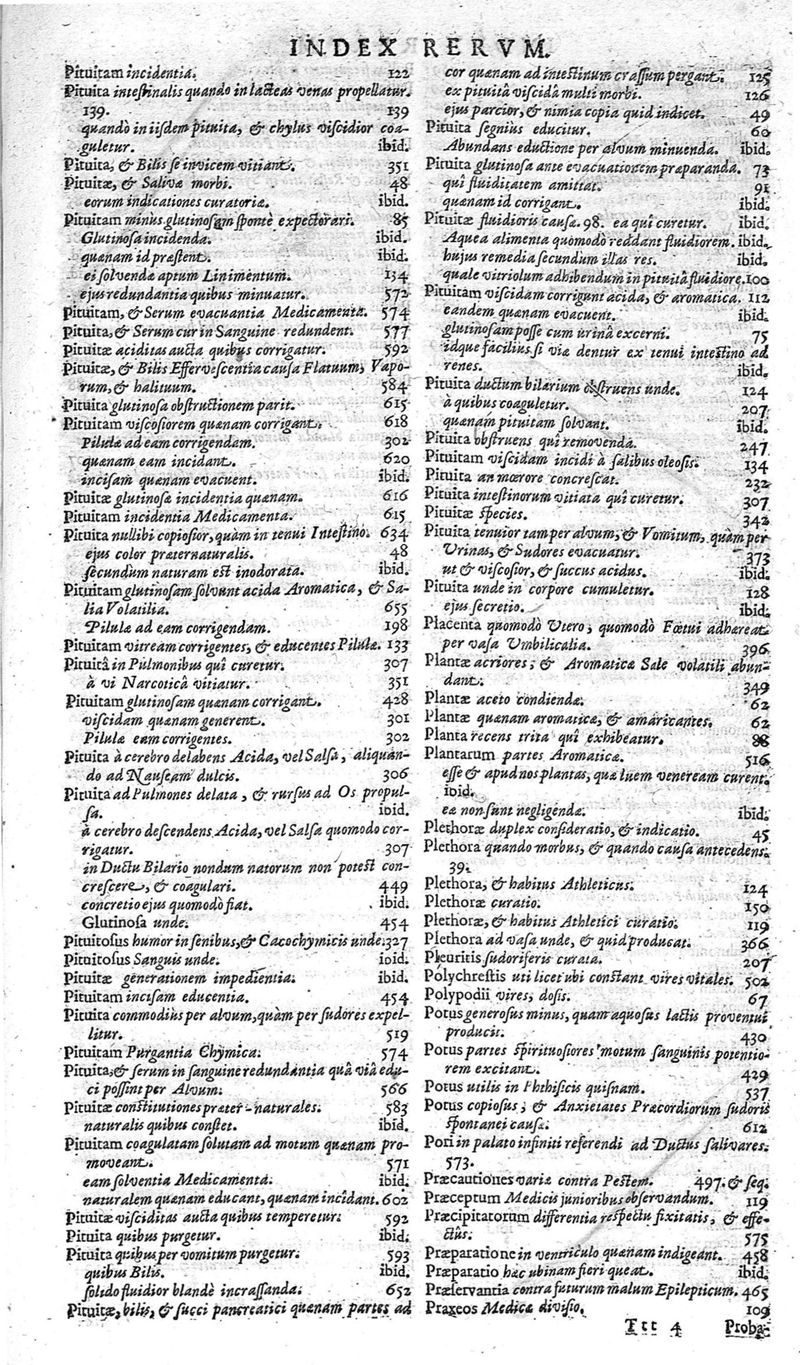 INDEX RERVM.
Pituitam incidentia. 122
Pituita intestinalis quando in lacteas venas propellatur.
139. 139
quandò in iisdem pituita, & chylus viscidior coa-
guletur. ibid.
Pituita, & Bilis se invicem vitiants. 351
Pituitæ, & Salivæ morbi. 48
eorum indicationes curatoriæ. ibid.
Pituitam minus glutinosam spontè expectorari. 85
Glutinosa incidenda. ibid.
quænam id præstent. ibid.
ei solvendæ aptum Linimentum. 134
ejus redundantia quibus minuatur. 572
Pituitam, & Serum evacuantia Medicamenta. 574
Pituita, & Serum cur in Sanguine redundent. 577
Pituitæ aciditas aucta quibus corrigatur. 592
Pituitæ, & Bilis Effervescentia causa Flatuum, Vapo-
rum, & halituum. 584
Pituita glutinosa obstructionem parit. 615
Pituitam viscosiorem quænam corrigant. 618
Pilulæ ad eam corrigendam. 302
quænam eam incidant. 620
incisam quænam evacuent. ibid.
Pituitæ glutinosæ incidentia quænam. 616
Pituitam incidentia Medicamenta. 615
Pituita nullibi copiosior, quàm in tenui Intestino. 634
ejus color præternaturalis. 48
secundùm naturam est inodorata. ibid.
Pituitam glutinosam solvunt acida Aromatica, & Sa-
lia Volatilia. 655
Pilulæ ad eam corrigendam. 198
Pituitam vitream corrigentes, & educentes Pilulæ. 133
Pituitâ in Pulmonibus quî curetur. 307
à vi Narcoticâ vitiatur. 351
Pituitam glutinosam quænam corrigant. 428
viscidam quænam generent. 301
Pilulæ eam corrigentes. 302
Pituita à cerebro delabens Acida, vel Salsa, aliquan-
do ad Nauseam dulcis. 306
Pituita ad Pulmones delata, & rursus ad Os propul-
sa. ibid.
à cerebro descendens Acida, vel Salsa quomodo cor-
rigatur. 307
in Ductu Bilario nondum natorum non potest con-
crescere, & coagulari. 449
concretio ejus quomodò fiat. ibid.
Glutinosa unde. 454
Pituitosus humor in senibus, & Cacochymicis unde. 327
Pituitosus Sanguis unde. ibid.
Pituitæ generationem impedientia. ibid.
Pituitam incisam educentia. 454
Pituita commodiùs per alvum, quàm per sudores expel-
litur. 519
Pituitam Purgantia Chymica. 574
Pituita, & serum in sanguine redundantia quâ viâ edu-
ci possint per Alvum. 566
Pituitæ constitutiones præter-naturales. 583
naturalis quibus constet. ibid.
Pituitam coagulatam solutam ad motum quænam pro-
moveant. 571
eam solventia Medicamenta. ibid.
naturalem quænam educant, quænam incidant. 602
Pituitæ visciditas aucta quibus temperetur. 592
Pituita quibus purgetur. ibid.
Pituita quibus per vomitum purgetur. 593
quibus Bilis. ibid.
solido fluidior blandè incrassanda. 652
Pituitæ, bilis, & succi pancreatici quænam partes ad
cor quænam ad intestinum crassum pergant. 125
ex pituitâ viscidâ multi morbi. 126
ejus parcior, & nimia copia quid indicet. 49
Pituita segnius educitur. 60
Abundans eductione per alvum minuenda. ibid.
Pituita glutinosa ante evacuationem præparanda. 73
quî fluiditatem amittat. 91
quænam id corrigant. ibid.
Pituitæ fluidioris causa. 98. ea quî curetur. ibid.
Aquea alimenta quomodò reddant fluidiorem. ibid.
hujus remedia secundum illas res. ibid.
quale vitriolum adhibendum in pituitâ fluidiore. 100
Pituitam viscidam corrigunt acida, & aromatica. 112
eandem quænam evacuent. ibid.
glutinosam posse cum urinâ excerni. 75
idque facilius si viæ dentur ex tenui intestino ad
renes. ibid.
Pituita ductum bilarium obstruens unde. 124
à quibus coaguletur. 207
quænam pituitam solvant. ibid.
Pituita obstruens quî removenda. 247
Pituitam viscidam incidi à salibus oleosis. 134
Pituita an mœrore concrescat. 232
Pituita intestinorum vitiata quî curetur. 307
Pituitæ species. 342
Pituita tenuior tam per alvum, & Vomitum, quàm per
Urinas, & Sudores evacuatur. 373
ut & viscosior, & succus acidus. ibid.
Pituita unde in corpore cumuletur. 128
ejus secretio. ibid.
Placenta quomodò Utero, quomodò Fœtui adhæreat
per vasa Umbilicalia. 396
Plantæ acriores, & Aromaticæ Sale volatili abun-
dant. 349
Plantæ aceto condiendæ. 62
Plantæ quænam aromaticæ, & amaricantes. 62
Planta recens trita quî exhibeatur. 88
Plantarum partes Aromaticæ. 516
esse & apud nos plantas, quæ luem veneream curent.
ibid.
eæ non sunt negligendæ. ibid.
Plethoræ duplex consideratio, & indicatio. 45
Plethora quando morbus, & quando causa antecedens.
39.
Plethora, & habitus Athleticus. 124
Plethoræ curatio. 150
Plethoræ, & habitus Athletici curatio. 119
Plethora ad vasa unde, & quid producat. 366
Pleuritis sudoriferis curata. 207
Polychrestis uti licet ubi constant vires vitales. 502
Polypodii vires, dosis. 67
Potus generosus minus, quam aquosus lactis proventui
producit. 430
Potus partes spirituosiores motum sanguinis potentio-
rem excitant. 429
Potus utilis in Phthisicis quisnam. 537
Potus copiosus, & Anxietates Præcordiorum sudoris
spontanei causa. 612
Pori in palato infiniti referendi ad Ductus salivares.
573.
Præcautiones variæ contra Pestem. 497. & seq.
Præceptum Medicis junioribus observandum. 119
Præcipitatorum differentia respectu fixitatis, & effe-
ctûs. 575
Præparatione in ventriculo quænam indigeant. 458
Præparatio hæc ubinam fieri queat. ibid.
Præservantia contra futurum malum Epilepticum. 465
Praxeos Medicæ divisio. 109
Ttt 4 Proba-